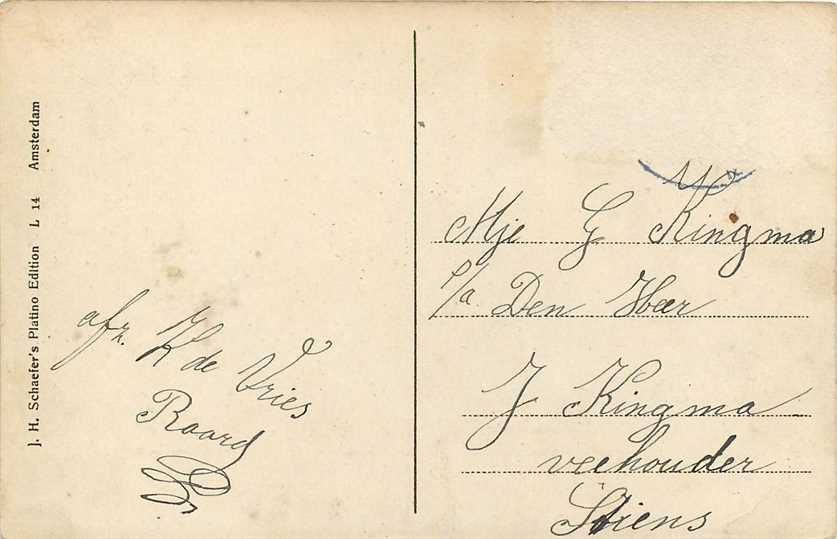 J. H. Schaefer's Platino Edition L 14 Amsterdam
afz. K de Vries
Raard
Mje G Kingma
p/a Den Heer
J Kingma
veehouder
Stiens